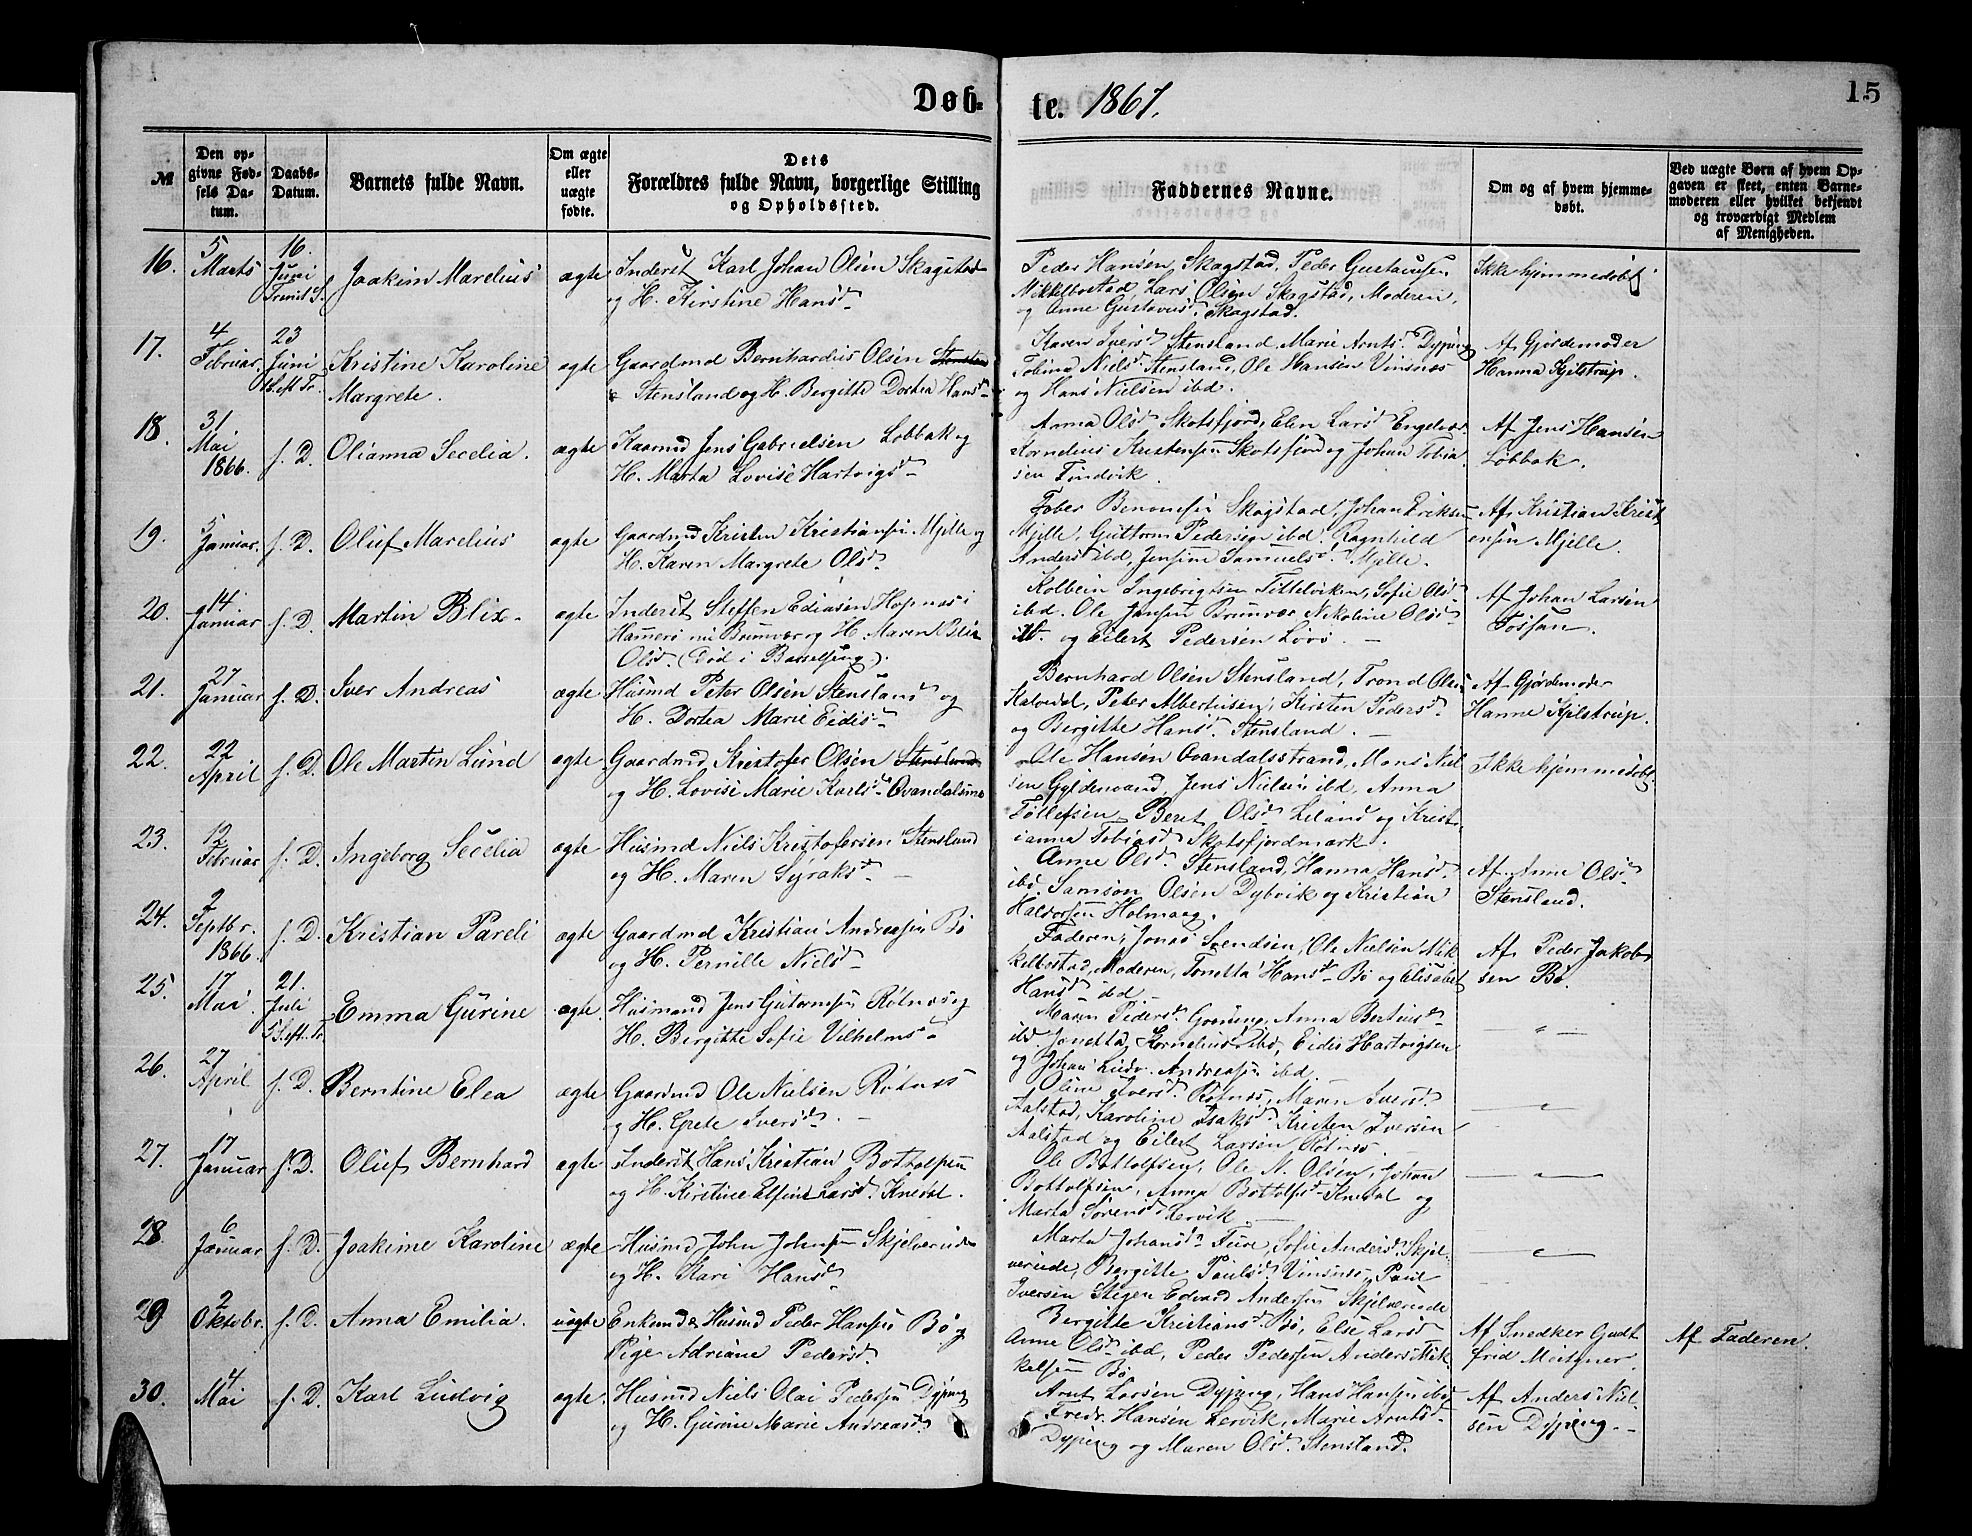 Døb-
te. 1867.
15
№
Den op-
givne Fød-
sels Da-
tum.
Daabs-
Datum.
Barnets fulde Navn.
Om ægte
eller
uægte
fødte.
Dets
Forældres fulde Navn, borgerlige Stilling
og Opholdssted.
Faddernes Navne.
Om og af hvem hjemme-
døbt.
Ved uægte Børn af hvem Op-
gaven er skeet, enten Barne-
moderen eller hvilket bekjendt
og troværdigt Medlem
af Menigheden.
16.
5
Marts
16.
Juni
Trinit. S.
Joakim Marelius
ægte
Inderst Karl Johan Olsen Skagstad
og H. Kirstine Hansd.
Peder Hansen Skagstad, Peder Gustavsen
Mikkelbostad Lars Olsen Skagstad, Moderen,
og Anne Gustavsd. Skagstad.
Ikke hjemmedøbt
17.
4
Februar
23
Juni
1 S. eft. Tr.
Kristine Karoline
Margrete.
ægte
Gaardmd Bernhardus Olsen
Stensland og H. Bergitte Dortea Hansd.
Karen Iversd. Stensland, Marie Arntsd. Dyping
Tobina Nielsd. Stensland, Ole Hansen Vinsnes
og Hans Nielsen ibd.
Af Gjordemoder
Hanna Kjilstrup.
18.
31
Mai
1866.
s. D.
Olianna Secelia.
ægte
Kaarmd Jens Gabrielsen Lobbak og
H. Marta Lovise Hartvigsd.
Anna Olsd. Skotsfjord, Elen Larsd. Engelvær
Kornelius Kristensen Skotsfjord og Johan Tobia
sen Findvik.
Af Jens Hansen
Lobbak.
19.
5
Januar.
s. D.
Oluf Marelius
ægte
Gaardmd Kristen Kristiansen Mjelle og
H. Karen Margrete Olsd.
Tober Benoniesen Skagstad, Johan Eriksen
Mjelle, Guttorm Pedersen ibd. Ragnhild
Andersd. ibd, Jensine Samuelsd. Mjelle.
Af Kristian Krist
ensen Mjelle.
20.
14.
Januar
s. D.
Martin Blix.
ægte
Inderst Steffen Ediasen Hopnes i
Hammerø nu Brunvær og H. Maren Blix
Olsd. (Død i Barselseng).
Kolbein Ingebrigtsen Tittelviken, Sofie Olsd.
ibd. Ole Jensen Brunvær Nikoline Olsd.
ib. og Eilert Pedersen Løvø.
Af Johan Larsen
Fossan.
21.
27
Januar
s. D.
Iver Andreas
ægte
Husmd Peter Olsen Stensland og
H. Dortea Marie Eidisd.
Bernhard Olsen Stensland, Trond Olsen
Kalvedal, Peter Albertusen, Kirsten Pedersd.
og Bergitte Hansd. Stensland.
Af Gjordemoder
Hanne Kjilstrup.
22.
22
April
s. D.
Ole Martin Lund
ægte
Gaardmd Kristofer Olsen Stensland
og H. Lovise Marie Karlsd. Ovandalsmo
Ole Hansen Ovandalsstrand, Mons Niel
sen Gyldenvand, Jens Nielsen ibd, Anna
Tollefsen, Beret Olsd. Leland og Krist-
ianna Tobiasd. Skotsfjordmark.
Ikke hjemmedøbt
23.
12
Februar
s. D.
Ingeborg Secelia
ægte
Husmd Niels Kristofersen Stensland
og H. Maren Syraksd.
Anne Olsd. Stensland, Hanna Hansd.
ibd. Samson Olsen Dybvik og Kristian
Haldorsen Holmaag.
Af Anne Olsd.
Stensland.
24.
2
Septbr.
1866.
s. D.
Kristian Pareli
ægte
Gaardmd Kristian Andreasen Bø
og H. Pernille Nielsd.
Faderen, Jonas Svendsen, Ole Nielsen Mik
kelbostad, Moderen, Tonetta Hansd. Bø og Elisabet
Hansd. ibd
Af Peder Jakob
sen Bø.
25.
17
Mai
21.
Juli
5 S. eft. Tr.
Emma Gurine
ægte.
Husmand Jens Gutormsen Røtnes og
H. Bergitte Sofie Vilhelmsd.
Maren Pedersd. Grøning, Anna Bertheusd.
ibd. Jonetta Korneliusd. ibd, Eidis Hartvigsen
og Johan Ludv. Andreasen ibd.
— " —
26.
27
April
s. D.
Berntine Elea
ægte
Gaardmd Ole Nielsen Røtnes
og H. Grete Iversd.
Oline Iversd. Røtnes, Maren Iversd.
Aalstad, Karoline Isaksd. Kristen Iversen
Aalstad og Eilert Larsen Røtnes.
— " —
27.
17
Januar
s. D.
Oluf Bernhard
ægte
Inderst Hans Kristian Bottolfsen
og H. Kirstine Elfine Larsd. Knedal.
Ole Bottolfsen, Ole N. Olsen, Johan
Bottolfsen, Anna Bottolfsd. Knedal og
Marta Sørensd. Lervik.
— " —
28.
6
Januar
s. D.
Joakime Karoline
ægte
Husmd John Johnsen Skjelverude
og H. Kari Hansd.
Marta Johansd. Fure, Sofie Andersd. Skjel-
verude, Bergitte Paulsd. Vinsnes, Paul
Iversen Steigen Edvard Andersen Skjelverude
— " —
29
2
Oktobr.
s. D.
Anna Emilia.
uægte
Enkemd & Husmd Peder Hansen Bø og
Pige Adriane Pedersd.
Bergitte Kristiansd. Bø, Else Larsd.
Anne Olsd. ibd, Peder Pedersen Anders Mik
kelsen Bø.
Af Snedker Gudt
frid Meisner.
Af Faderen.
30.
4
Mai
s. D.
Karl Ludvig
ægte.
Husmd Niels Olai Pedersen Dyping
og H. Gurine Marie Andreasd.
Arnt Larsen Dyping, Hans Hansen ibd
Fredr. Hansen Lervik, Marie Arntsd.
Dyping og Maren Olsd. Stensland.
Af Anders Niel
sen Dyping.